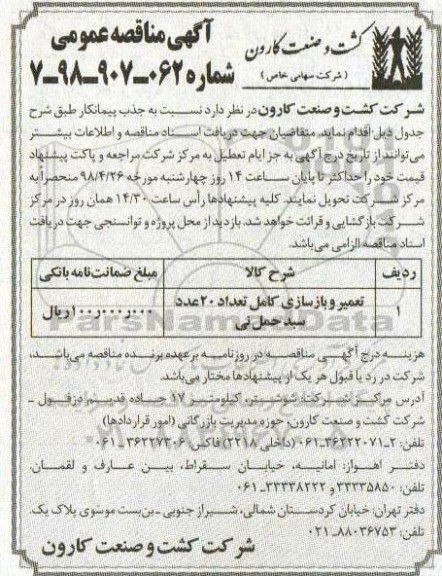 کشت و صنعت کارون
( شرکت سهامی خاص )
آگهی مناقصه عمومی
شماره ۰۶۲-۹۰۷-۹۸-۷
شرکت کشت و صنعت کارون در نظر دارد نسبت به جذب پیمانکار طبق شرح
جدول ذیل اقدام نماید. متقاضیان جهت دریافت اسناد مناقصه و اطلاعات بیشتر
می‌توانند از تاریخ درج آگهی به جز ایام تعطیل به مرکز شرکت مراجعه و پاکت پیشنهاد
قیمت خود را حداکثر تا پایان ساعت ۱۴ روز چهارشنبه مورخه ۹۸/۴/۲۶ منحصراً به
مرکز شرکت تحویل نمایند. کلیه پیشنهادها رأس ساعت ۱۴/۳۰ همان روز در مرکز
شرکت بازگشایی و قرائت خواهد شد. بازدید از محل پروژه و توانسنجی جهت دریافت
اسناد مناقصه الزامی می‌باشد.
ردیف شرح کالا مبلغ ضمانت‌نامه بانکی
۱ تعمیر و بازسازی کامل تعداد ۲۰ عدد سبد حمل نی ۱۰۰٫۰۰۰٫۰۰۰ ریال
هزینه درج آگهی مناقصه در روزنامه بر عهده برنده مناقصه می‌باشد،
شرکت در رد یا قبول هر یک از پیشنهادها مختار می‌باشد.
آدرس مرکز شرکت: شوشتر، کیلومتر ۱۷ جاده قدیم دزفول -
شرکت کشت و صنعت کارون، حوزه مدیریت بازرگانی (امور قراردادها)
تلفن: ۲-۳۶۲۲۲۰۷۱-۰۶۱ (داخلی ۲۲۱۸) فاکس ۳۶۲۲۷۳۰۶-۰۶۱
دفتر اهواز: امانیه، خیابان سقراط، بین عارف و لقمان.
تلفن: ۳۳۳۳۵۸۵۰ و ۳۳۳۳۸۲۲۲-۰۶۱
دفتر تهران: خیابان کردستان شمالی، شیراز جنوبی - بن‌بست موسوی پلاک یک.
تلفن: ۸۸۰۳۶۷۵۳-۰۲۱
شرکت کشت و صنعت کارون
ParsNamadData